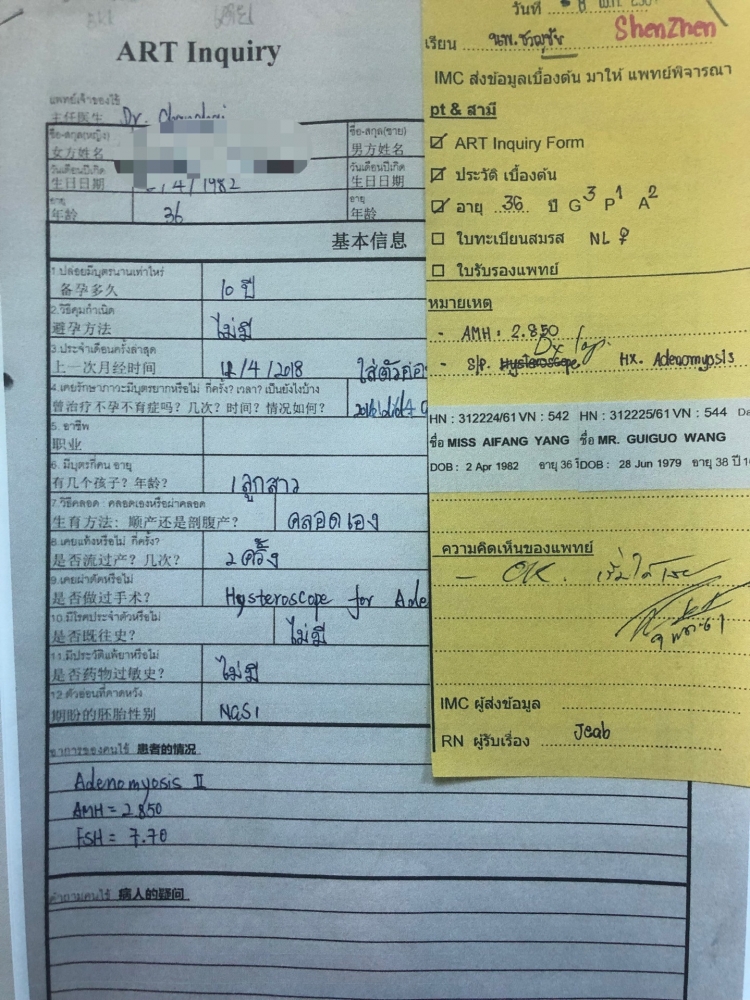 ART Inquiry
แพทย์เจ้าของไข้
主任医生 Dr.
ชื่อ-สกุล(หญิง)
女方姓名
ชื่อ-สกุล(ชาย)
男方姓名
วันเดือนปีเกิด
生日日期 /4/1982
วันเดือนปีเกิด
生日日期
อายุ
年龄 36
อายุ
年龄
基本信息
1.ปล่อยมีบุตรนานเท่าไหร่
备孕多久 10 ปี
2.วิธีคุมกำเนิด
避孕方法 ไม่มี
3.ประจำเดือนครั้งล่าสุด
上一次月经时间 12/4/2018
4.เคยรักษาภาวะมีบุตรยากหรือไม่ กี่ครั้ง? เวลา? เป็นยังไงบ้าง
曾治疗不孕不育症吗? 几次? 时间? 情况如何?
5. อาชีพ
职业
6. มีบุตรกี่คน อายุ
有几个孩子? 年龄? 1 ลูกสาว
7.วิธีคลอด : คลอดเองหรือผ่าคลอด
生育方法: 顺产还是剖腹产? คลอดเอง
8.เคยแท้งหรือไม่ กี่ครั้ง?
是否流过产? 几次? 2 ครั้ง
9.เคยผ่าตัดหรือไม่
是否做过手术? Hysteroscope for Ade
10.มีโรคประจำตัวหรือไม่
是否既往史? ไม่มี
11.มีประวัติแพ้ยาหรือไม่
是否药物过敏史? ไม่มี
12.ตัวอ่อนที่คาดหวัง
期盼的胚胎性别 NGS1
อาการของคนไข้ 患者的情况
Adenomyosis II
AMH = 2.850
FSH = 7.70
คำถามคนไข้ 病人的疑问
วันที่
ShenZhen
เรียน นพ.
IMC ส่งข้อมูลเบื้องต้น มาให้ แพทย์พิจารณา
pt & สามี
☑ ART Inquiry Form
☑ ประวัติ เบื้องต้น
☑ อายุ 36 ปี G3 P1 A2
☐ ใบทะเบียนสมรส NL ♀
☐ ใบรับรองแพทย์
หมายเหตุ
- AMH : 2.850
- S/P. Hysteroscope Hx. Adenomyosis
HN : 312224/61 VN : 542 HN : 312225/61 VN : 544 Da
ชื่อ MISS AIFANG YANG ชื่อ MR. GUIGUO WANG
DOB : 2 Apr 1982 อายุ 36 ปี DOB : 28 Jun 1979 อายุ 38 ปี 1
ความคิดเห็นของแพทย์
- OK.
IMC ผู้ส่งข้อมูล
RN ผู้รับเรื่อง Jeab